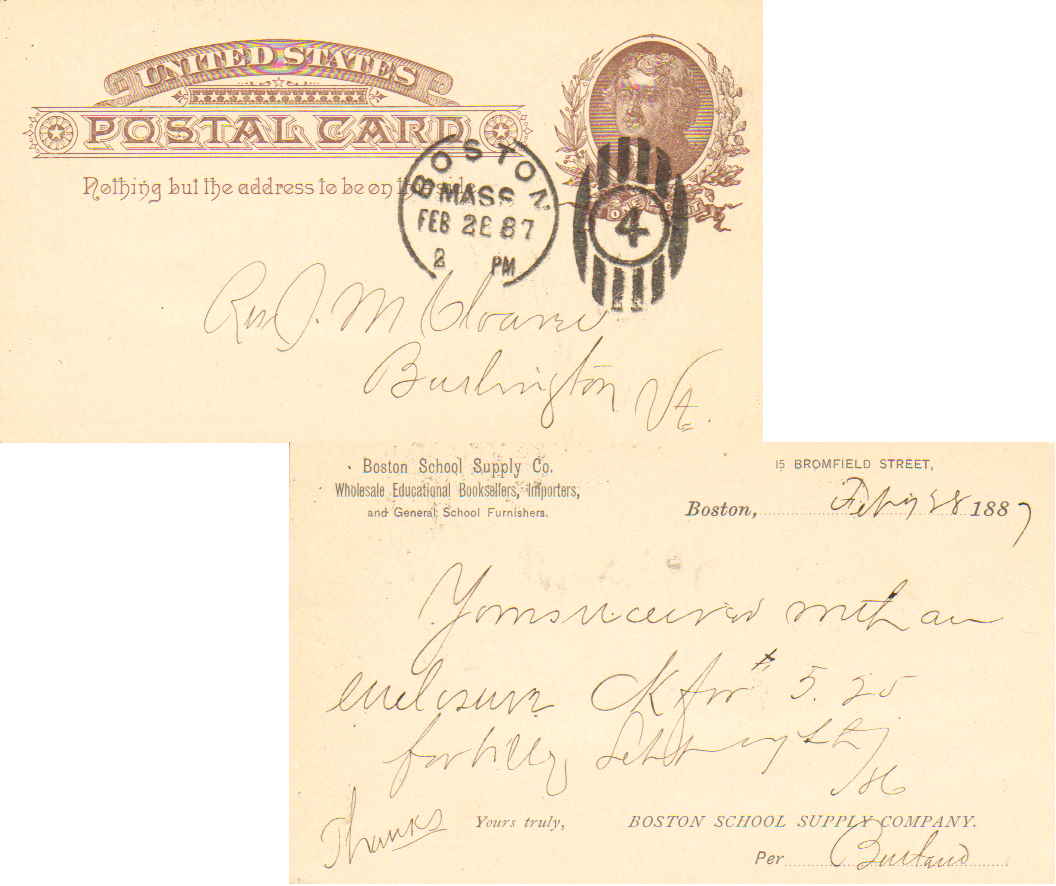 UNITED STATES
POSTAL CARD
Nothing but the address to be on this side
BOSTON
MASS
FEB 28 87
2 PM
4
ONE CENT
Rev J. M
Burlington
Vt.
Boston School Supply Co.
Wholesale Educational Booksellers, Importers,
and General School Furnishers.
15 BROMFIELD STREET,
Boston, Feby 28 1887
Yours received with an
enclosure Ck for # 5.25
for bill
Thanks
Yours truly,
BOSTON SCHOOL SUPPLY COMPANY.
Per